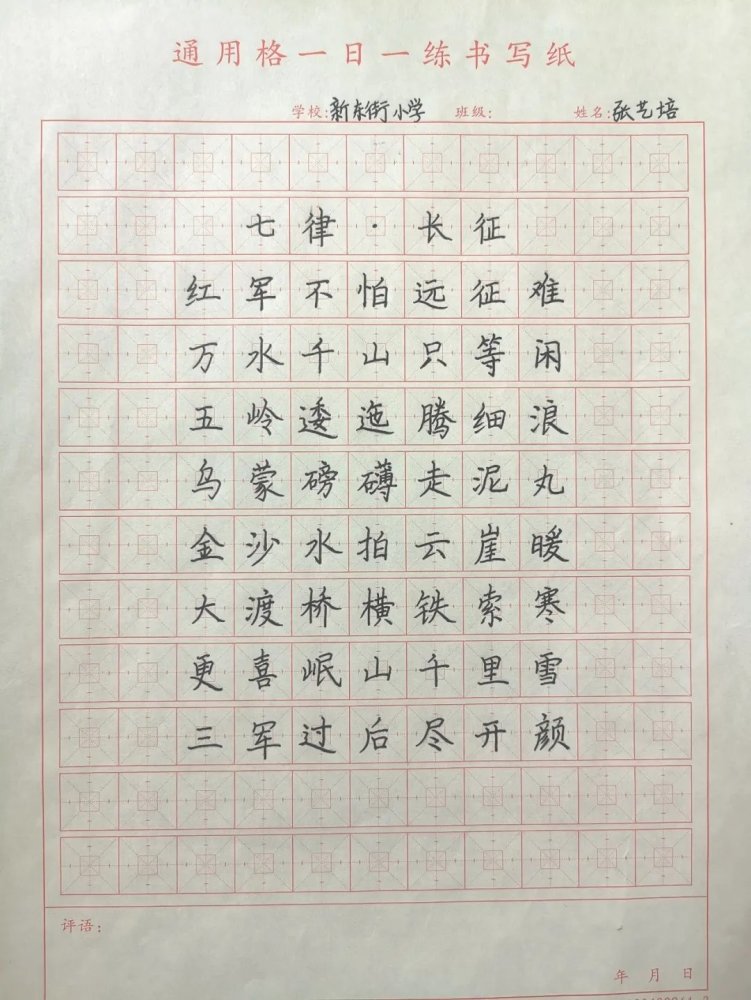 通用格一日一练书写纸
学校:新东街小学 班级: 姓名:张艺培
七律·长征
红军不怕远征难
万水千山只等闲
五岭逶迤腾细浪
乌蒙磅礴走泥丸
金沙水拍云崖暖
大渡桥横铁索寒
更喜岷山千里雪
三军过后尽开颜
评语:
年 月 日